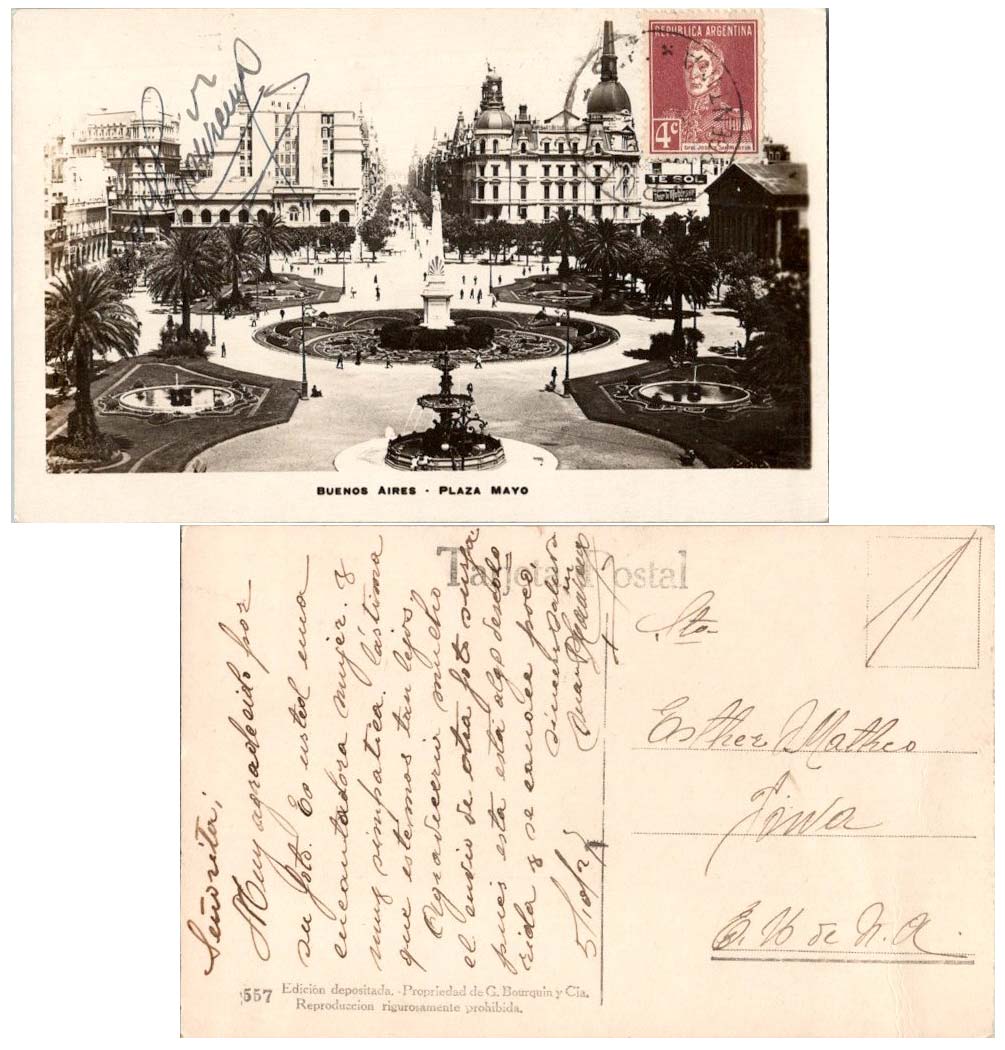 REPUBLICA ARGENTINA
4c
TE SOL
BUENOS AIRES - PLAZA MAYO
Tarjeta Postal
Señorita,
Muy agradecido por
su foto. Es usted una
encantadora mujer y
muy simpatica. Lástima
que estemos tan lejos,
Agradeceria mucho
el envio de otra foto suya
pues esta está algo descolo
rida y se conoce poco,
sincero saluda
Juan
5/10/27
Sta
Esther Matheo
Iowa
E. U de N. A.
557
Edición depositada. - Propriedad de G. Bourquin y Cia.
Reproduccion rigurosamente prohibida.